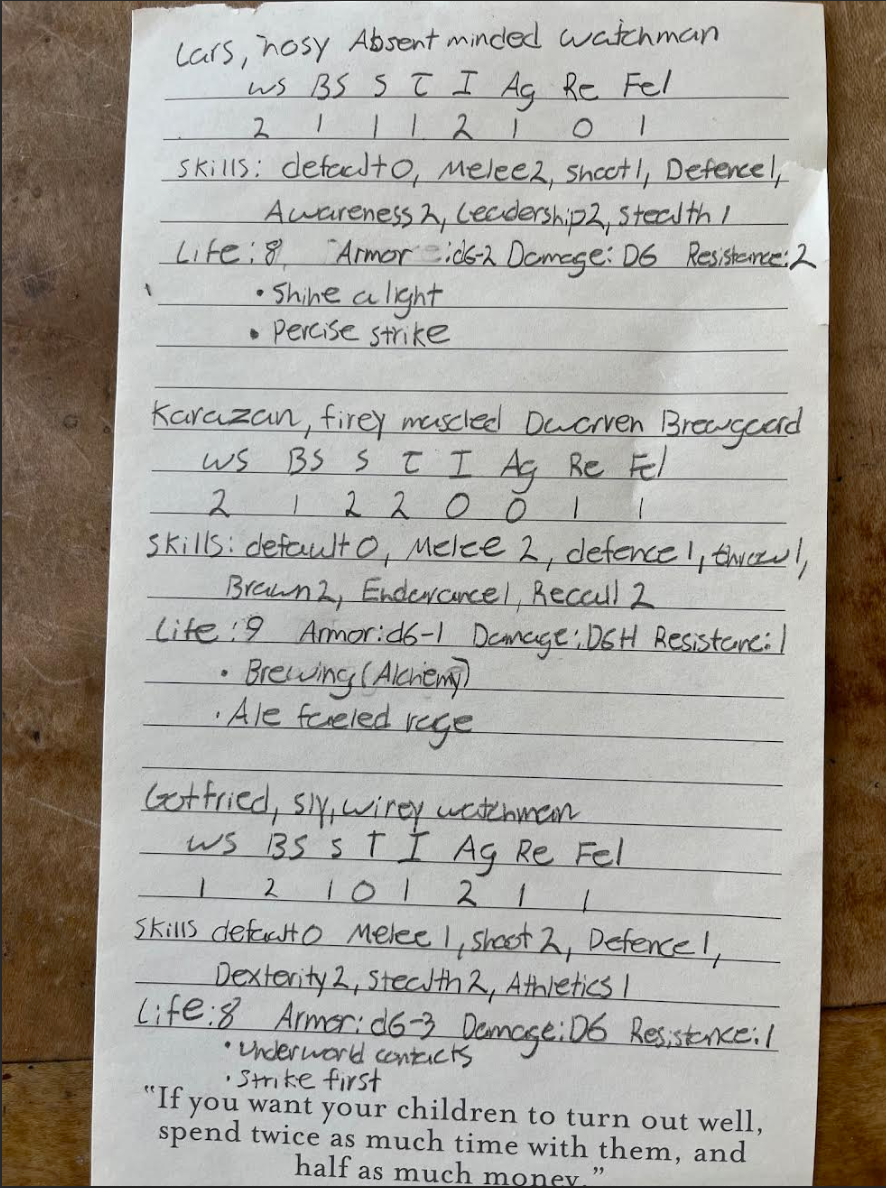 Lars, nosy Absent minded watchman
WS BS S T I Ag Re Fel
2 1 1 1 2 1 0 1
Skills: default 0, Melee 2, shoot 1, Defence 1,
Awareness 2, Leadership 2, Stealth 1
Life: 8 Armor :d6-2 Damage: D6 Resistance: 2
• Shine a light
• Percise strike
Karazan, firey muscled Dwarven Brewgaard
WS BS S T I Ag Re Fel
2 1 2 2 0 0 1 1
Skills: default 0, Melee 2, defence 1, throw 1,
Brawn 2, Endurance 1, Recall 2
Life: 9 Armor: d6-1 Damage: D6H Resistance: 1
• Brewing (Alchemy)
• Ale fueled rage
Gotfried, sly, wirey watchman
WS BS S T I Ag Re Fel
1 2 1 0 1 2 1 1
Skills default 0 Melee 1, shoot 2, Defence 1,
Dexterity 2, Stealth 2, Athletics 1
Life: 8 Armor: d6-3 Damage: D6 Resistance: 1
• Underworld contacts
• Strike first
"If you want your children to turn out well,
spend twice as much time with them, and
half as much money."